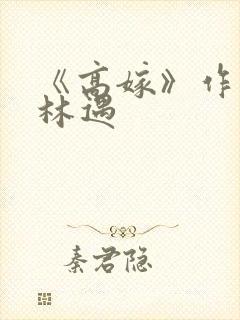 《高嫁》作
林遇
秦君隐